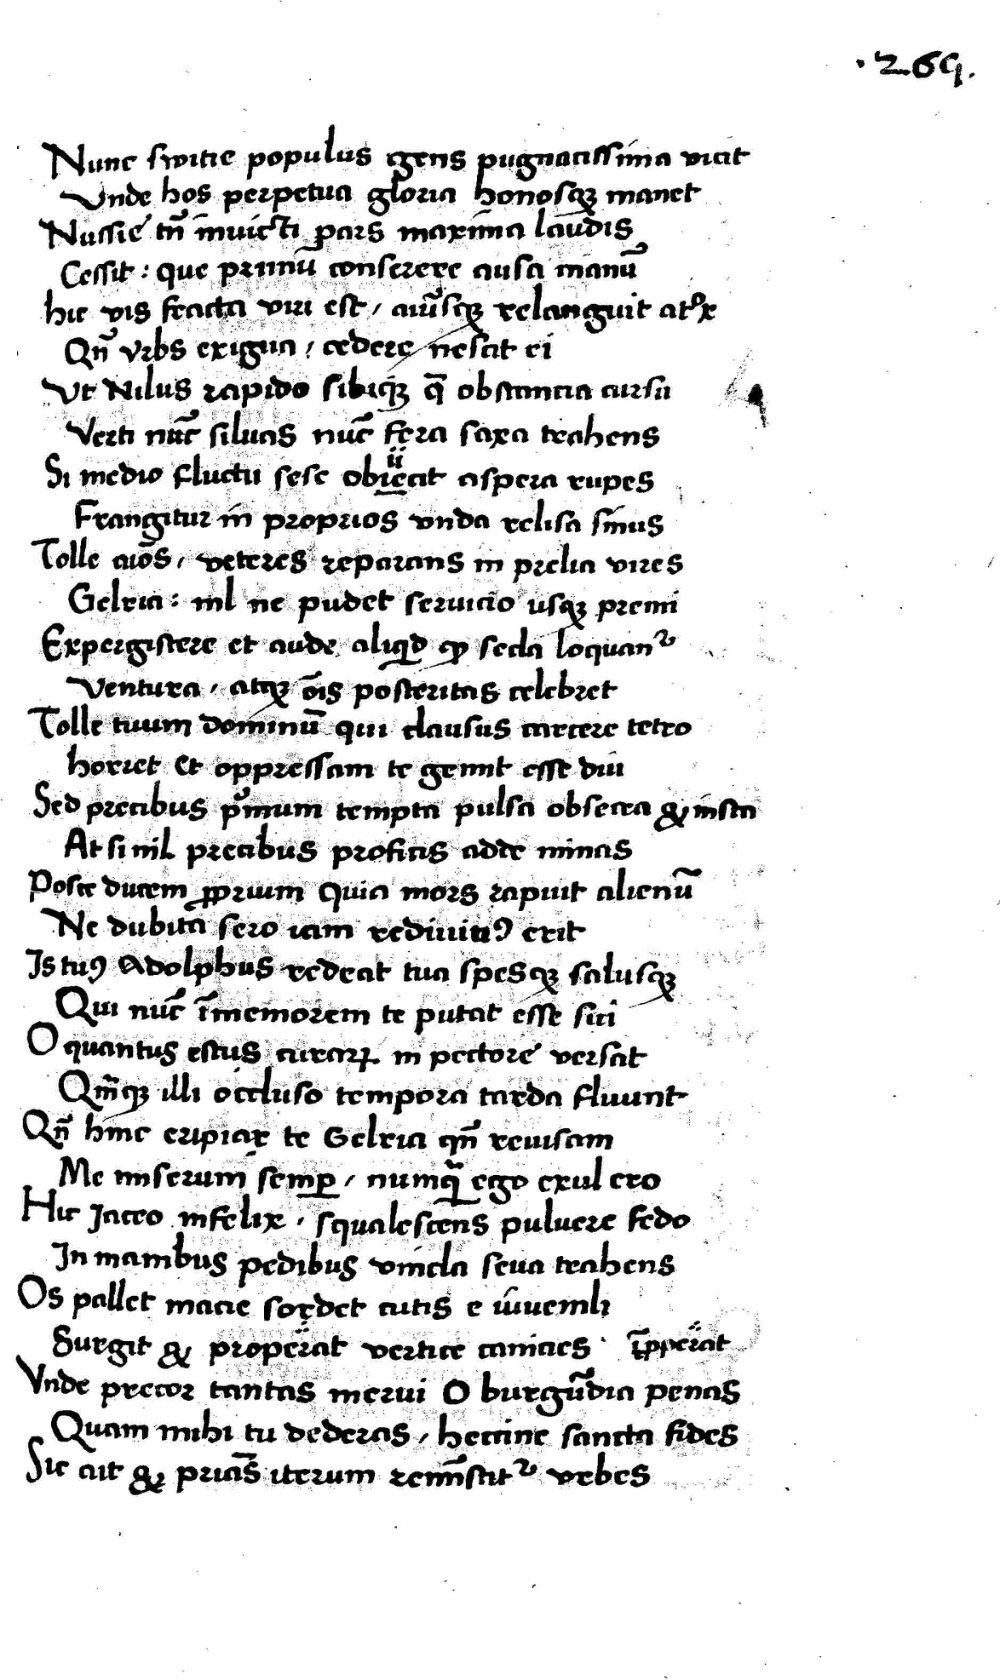 .269.
Nunc switie populus gens pugnacissima vicit
Vnde hos perpetua gloria honosqꝫ manet
Nussie tn̄ inuicti pars maxima laudis
Cessit : que primū conserere ausa manū
hic vis fracta viri est / aiūsqꝫ relanguit atox
Qn̄ vrbs exigua / cedere nescit ei
Ut Nilus rapido sibiqꝫ q̄ obstantia cursu
Verti nūc siluas nūc fera saxa trahens
Si medio fluctu sese obiecit aspera rupes
Frangitur in proprios vnda relisa sinus
Tolle aiōs / veteres reparans in prelia vires
Gelria : nil ne pudet seruicio usqꝫ premi
Expergistere et aude aliqd ꝙ secla loquant᷑
Ventura / atqꝫ oīs posteritas celebret
Tolle tuum dominū qui clausus carcere tetro
horret et oppressam te gemit esse diu
Sed precibus pīmum tempta pulsa obsecra & insta
At si nil precibus proficis adde minas
Posce ducem ꝓprium quia mors rapuit alienū
Ne dubita sero iam rediuiuꝰ erit
Is tuꝰ Adolphus redeat tua spesqꝫ salusqꝫ
Qui nūc īmemorem te putat esse siti
O quantus estus curaꝝ in pectore versat
Qm̄qꝫ illi occluso tempora tarda fluunt
Qn̄ hinc eripiar te Gelria qn̄ reuisam
Me miserum semꝑ / numq̄ ego exul ero
Hic Jaceo infelix . squalescens puluere fedo
In manibus pedibus vincla seua trahens
Os pallet macie sordet cutis e iuuemli
Surgit & properat vertice canicies . īpperat
Vnde precor tantas merui O burgūdia penas
Quam mihi tu dederas / heccine sancta fides
Sic ait & pricās iterum reminīscit᷑ vrbes